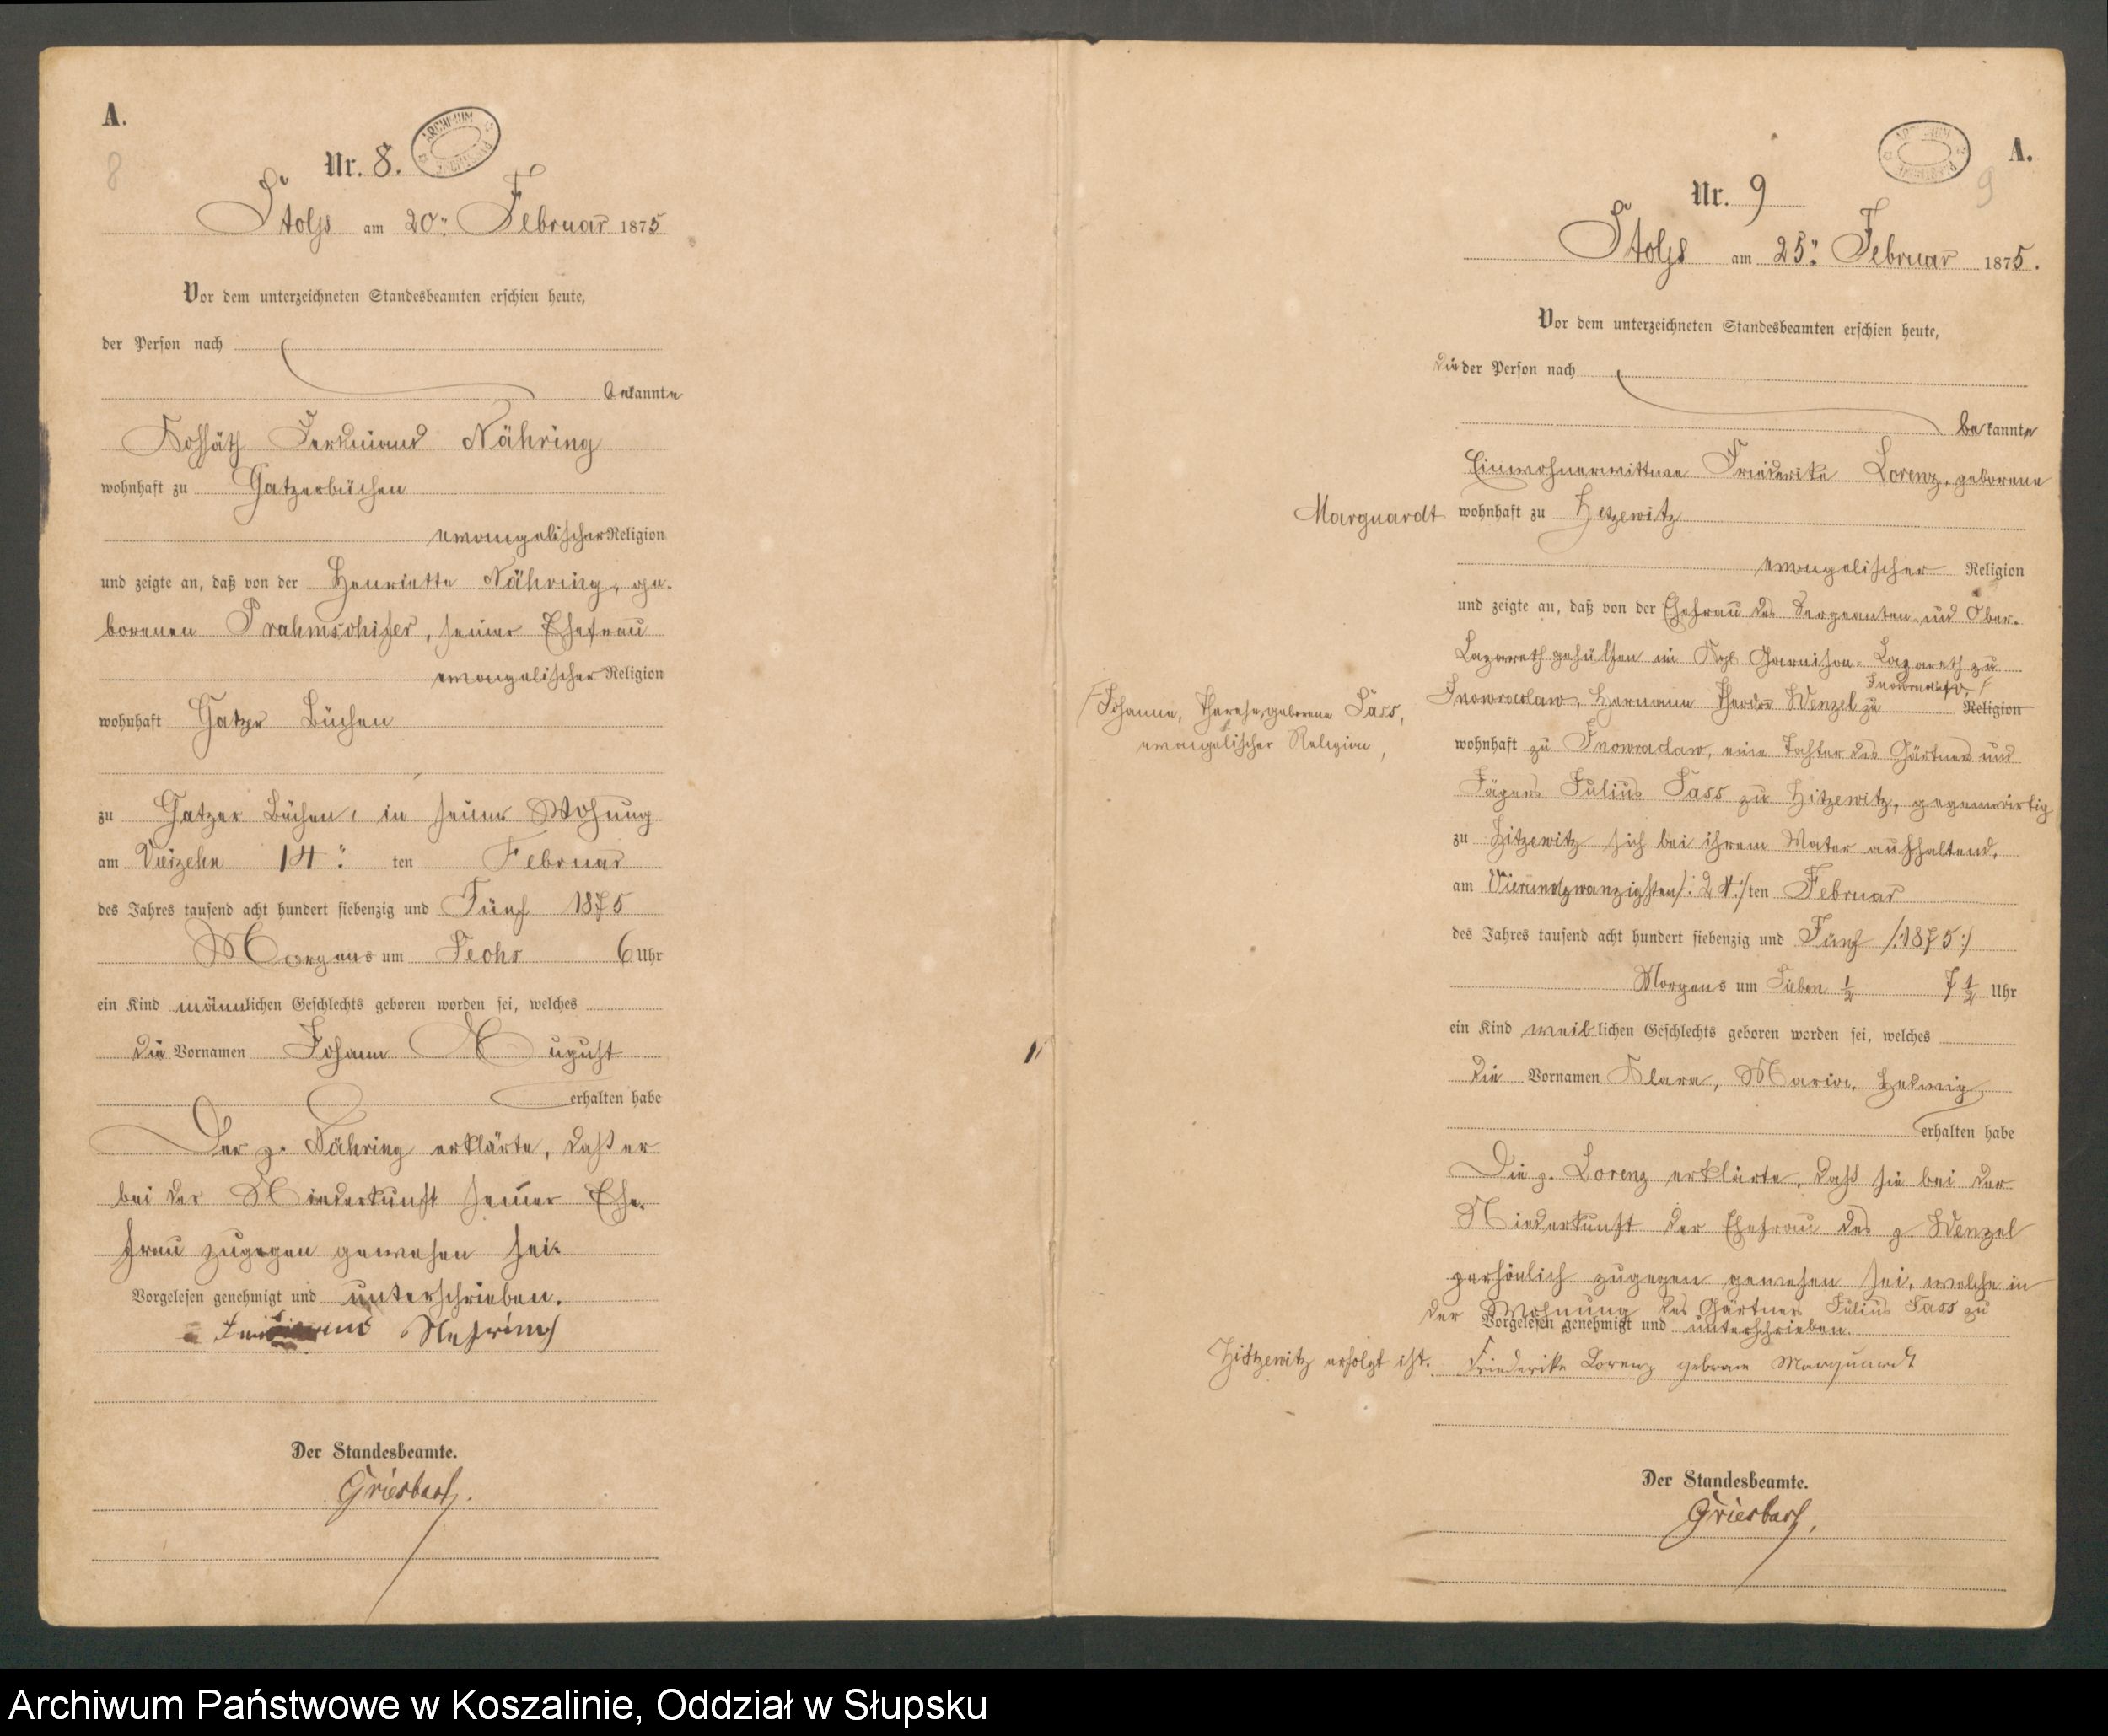 A.
8
Nr. 8.
Stolp am 20ten Februar 1875
Vor dem unterzeichneten Standesbeamten erschien heute,
der Person nach
bekannte
Kossäth Ferdinand Nähring
wohnhaft zu Gatzerbüchen
evangelischer Religion
und zeigte an, daß von der Henriette Nähring, ge-
borenen Prahmschifer, seiner Ehefrau
evangelischer Religion
wohnhaft Gatzer Büchen
zu Gatzer Büchen, in seiner Wohnung
am Vierzehn 14: ten Februar
des Jahres tausend acht hundert siebenzig und Fünf 1875
Morgens um Sechs 6 Uhr
ein Kind männlichen Geschlechts geboren worden sei, welches
die Vornamen Johann August
erhalten habe
Der p. Nähring erklärte, daß er
bei der Niederkunft seiner Ehe-
frau zugegen gewesen sei.
Vorgelesen genehmigt und unterschrieben.
Nehring
Der Standesbeamte.
Griesbach.
A.
9
Nr. 9
Stolp am 25: Februar 1875.
Vor dem unterzeichneten Standesbeamten erschien heute,
die der Person nach
bekannte
Einwohnerwittwe Friederike Lorenz, geborene
Marquardt wohnhaft zu Hitzewitz
evangelischer Religion
und zeigte an, daß von der Ehefrau des Sergeanten und Ober-
Lazarethgehülfen im Kgl. Garnison-Lazareth zu
Inowraclaw, Hermann Theodor Wenzel zu Inowraclaw, Religion
Johanne, Therese, geborene Sass,
evangelischer Religion,
wohnhaft zu Inowraclaw, eine Tochter des Gärtners und
Jägers Julius Sass zu Hitzewitz, gegenwärtig
zu Hitzewitz sich bei ihrem Vater aufhaltend,
am Vierundzwanzigsten /: 24 :/ ten Februar
des Jahres tausend acht hundert siebenzig und Fünf /:1875:/
Morgens um Sieben ½ 7 ½ Uhr
ein Kind weiblichen Geschlechts geboren worden sei, welches
die Vornamen Klara, Maria, Hedwig
erhalten habe
Die p. Lorenz erklärte, daß sie bei der
Niederkunft der Ehefrau des p. Wenzel
persönlich zugegen gewesen sei, welche in
der Wohnung des Gärtners Julius Sass zu
Hitzewitz erfolgt ist.
Vorgelesen genehmigt und unterschrieben.
Friederike Lorenz geborne Marquardt
Der Standesbeamte.
Griesbach,
Archiwum Państwowe w Koszalinie, Oddział w Słupsku